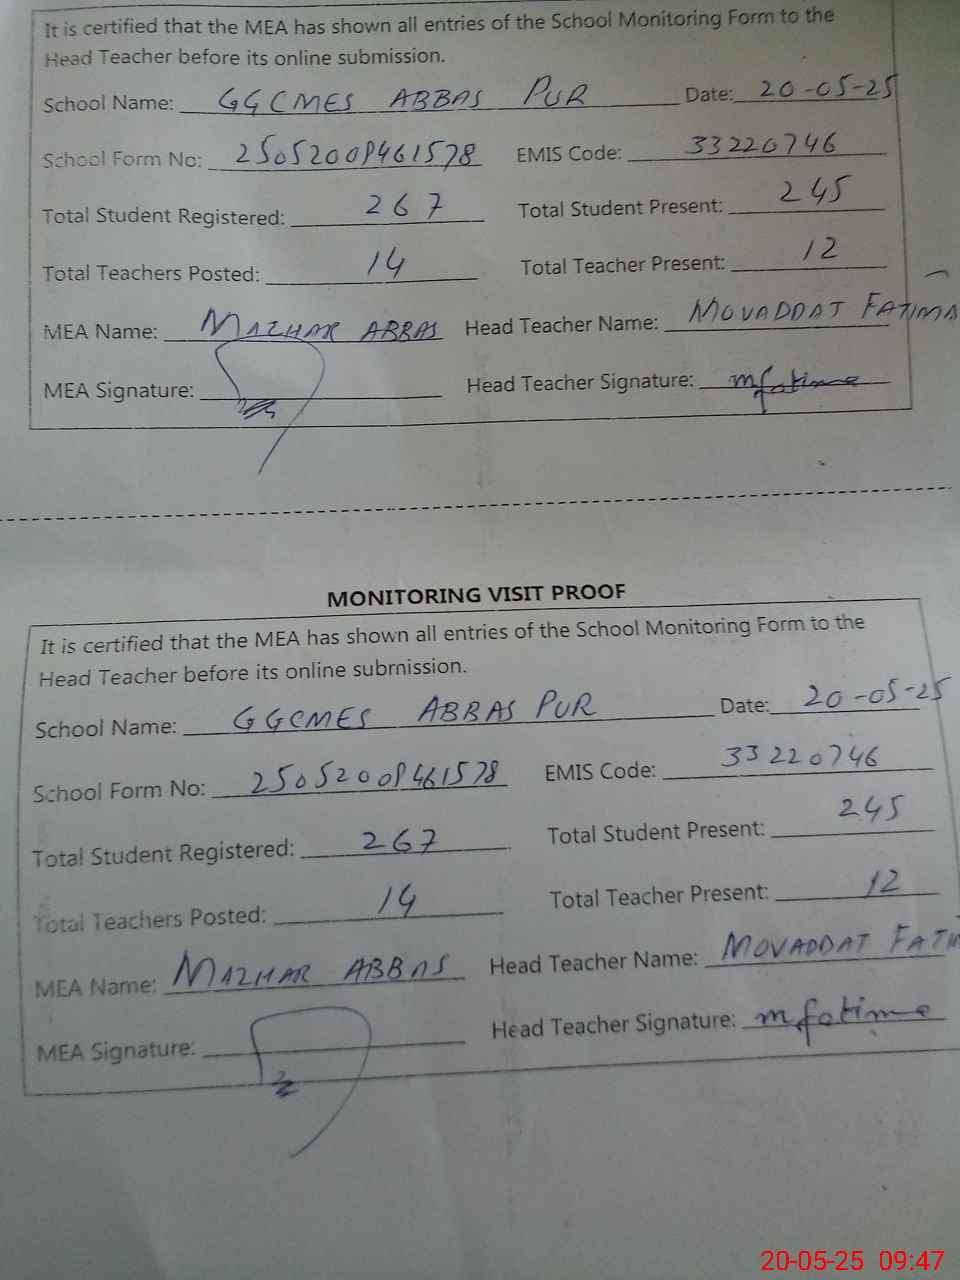 It is certified that the MEA has shown all entries of the School Monitoring Form to the
Head Teacher before its online submission.
School Name: GGCMES ABBAS PUR Date: 20-05-25
School Form No: 25052009461578 EMIS Code: 33220746
Total Student Registered: 267 Total Student Present: 245
Total Teachers Posted: 14 Total Teacher Present: 12
MEA Name: MAZHAR ABBAS Head Teacher Name: MOVADDAT FATIMA
MEA Signature: Head Teacher Signature: mfatima
MONITORING VISIT PROOF
It is certified that the MEA has shown all entries of the School Monitoring Form to the
Head Teacher before its online submission.
School Name: GGCMES ABBAS PUR Date: 20-05-25
School Form No: 25052009461578 EMIS Code: 33220746
Total Student Registered: 267 Total Student Present: 245
Total Teachers Posted: 14 Total Teacher Present: 12
MEA Name: MAZHAR ABBAS Head Teacher Name: MOVADDAT FATIM
MEA Signature: Head Teacher Signature: mfatima
20-05-25 09:47